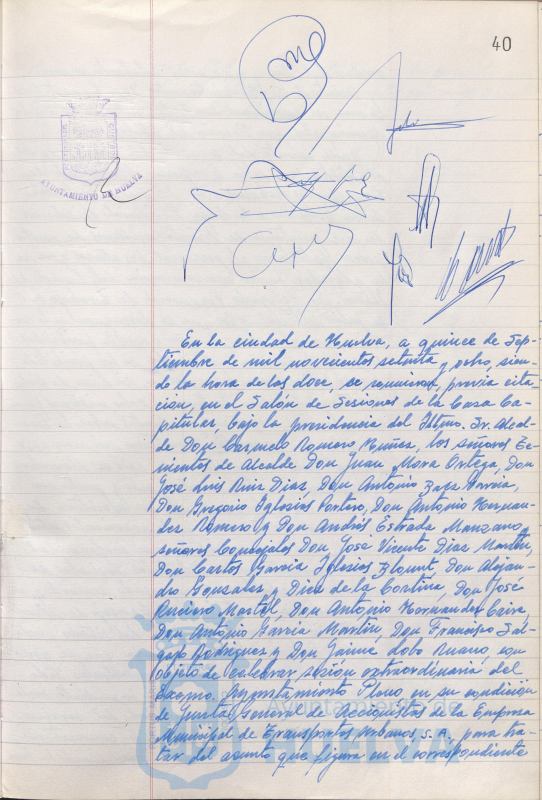 40
AYUNTAMIENTO DE HUELVA
En la ciudad de Huelva, a quince de Sep-
tiembre de mil novecientos setenta y ocho, sien-
do la hora de las doce, se reunieron, previa cita-
cion, en el Salón de Sesiones de la Casa Ca-
pitular, bajo la presidencia del Iltmo. Sr. Alcal-
de Don Carmelo Romero Núñez, los señores Te-
nientes de Alcalde Don Juan Mora Ortega, Don
José Luis Ruiz Diaz, Don Antonio García,
Don Gregorio Iglesias Don Antonio Hernan-
dez Romero y Don Andrés Estrada Manzano y
señores Concejales Don José Vicente Diaz Martín,
Don Carlos García Iglesias Blount, Don Alejan-
dro Gonzalez y Diez de la Cortina, Don José
Martel, Don Antonio Hernandez
Don Antonio García Martín, Don Francisco Sal-
gado Rodriguez y Don Jaime Lobo con
objeto de celebrar sesión extraordinaria del
Excmo. Ayuntamiento Pleno en su condición
de Junta General de Accionistas de la Empresa
Municipal de Transportes Urbanos, S.A, para tra-
tar del asunto que figura en el correspondiente
Ayuntamiento de
HUELVA